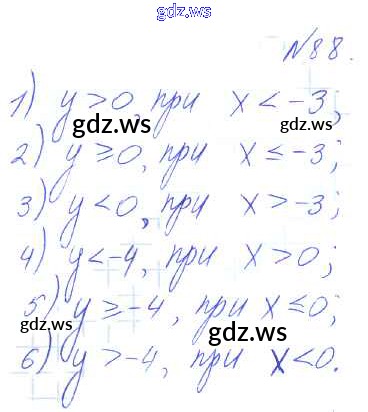 gdz.ws
№88.
1) y > 0, при x < -3;
gdz.ws gdz.ws
2) y ≥ 0, при x ≤ -3;
3) y < 0, при x > -3;
gdz.ws gdz.ws
4) y < -4, при x > 0;
5) y ≥ -4, при x ≤ 0;
gdz.ws gdz.ws
6) y > -4, при x < 0.
gdz.ws